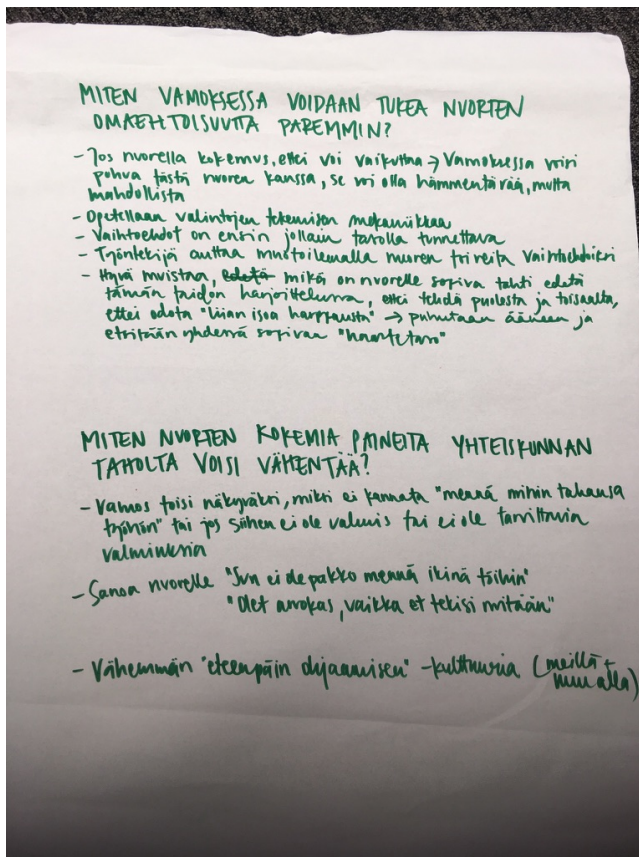 MITEN VAMOKSESSA VOIDAAN TUKEA NUORTEN
OMAEHTOISUUTTA PAREMMIN?
- Jos nuorella kokemus, ettei voi vaikuttaa → Vamoksessa voisi
puhua tästä nuoren kanssa, se voi olla hämmentävää, mutta
mahdollista
- Opetellaan valintojen tekemisen mekaniikkaa
- Vaihtoehdot on ensin jollain tavalla tunnettava
- Työntekijä auttaa muotoilemalla nuoren toiveita vaihtoehdoiksi
- Hyvä muistaa, edetä mikä on nuorelle sopiva tahti edetä
tämän taidon harjoittelussa, ettei tehdä puolesta ja toisaalta,
ettei odota "liian isoa harppausta" → puhutaan ääneen ja
etsitään yhdessä sopivaa "haastetaso"
MITEN NUORTEN KOKEMIA PAINEITA YHTEISKUNNAN
TAHOLTA VOISI VÄHENTÄÄ?
- Vamos toisi näkyväksi, miksi ei kannata "mennä mihin tahansa
työhön" tai jos siihen ei ole valmis tai ei ole tarvittavia
valmiuksia
- Sanoa nuorelle "Sun ei ole pakko mennä ikinä töihin"
"Olet arvokas, vaikka et tekisi mitään"
- Vähemmän "eteenpäin ohjaamisen" -kulttuuria (meillä +
muualla)